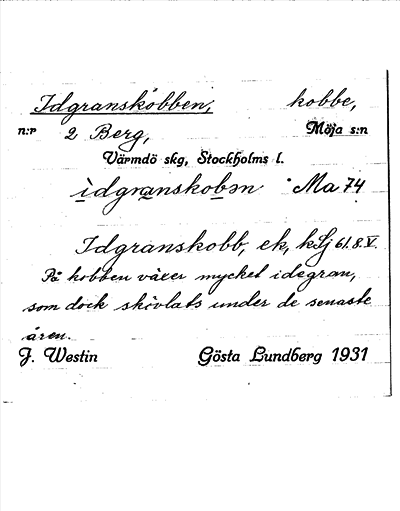 Idgranskobben, kobbe,
n:r 2 Berg, Möja s:n
Värmdö skg, Stockholms l.
idgranskobən Ma 74
Idgranskobb, ek, 61.8.V.
På kobben växer mycket idegran,
som dock skövlats under de senaste
åren.
J. Westin Gösta Lundberg 1931